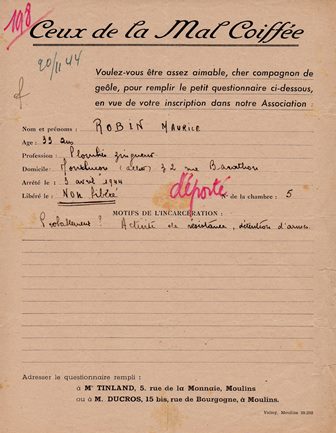 198
Ceux de la Mal Coiffée
20/11 44
Voulez-vous être assez aimable, cher compagnon de
geôle, pour remplir le petit questionnaire ci-dessous,
en vue de votre inscription dans notre Association :
Nom et prénoms : ROBIN Maurice
Age : 33 ans
Profession : Plombier zingueur
Domicile : Montluçon (allier) 32 rue Barathon
Arrêté le : 3 avril 1944
Libéré le : NON libéré
déporté
N° de la chambre : 5
MOTIFS DE L'INCARCÉRATION :
Probablement ? Activité de résistance, détention d'armes
Adresser le questionnaire rempli :
à Me TINLAND, 5, rue de la Monnaie, Moulins
ou à M. DUCROS, 15 bis, rue de Bourgogne, à Moulins.
Moulins